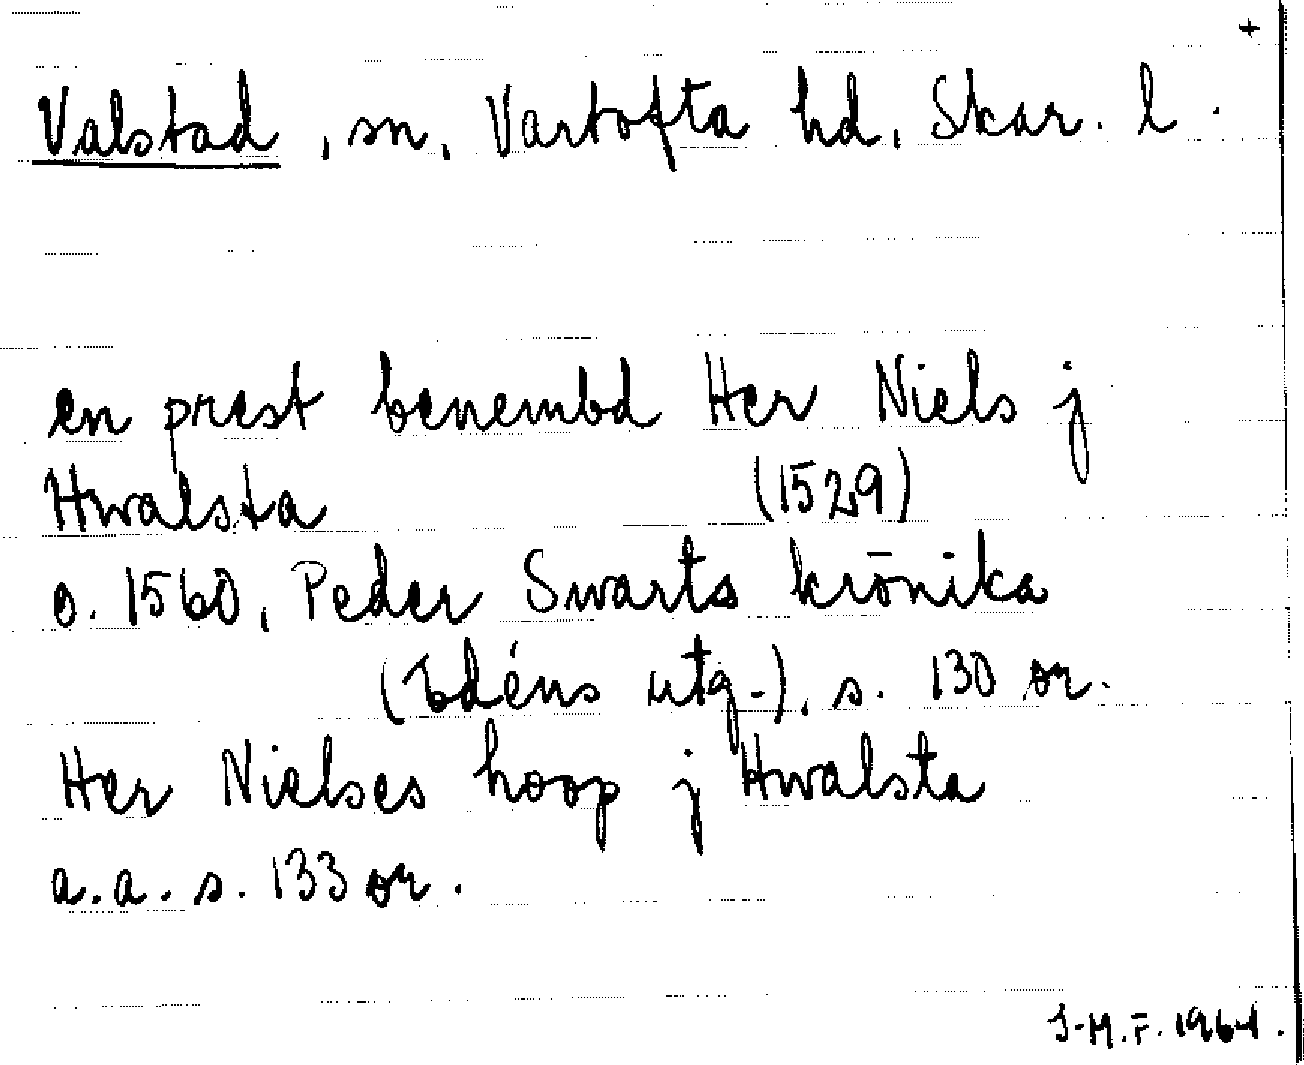 +
Valstad, sn, Vartofta hd, Skar. l.
en prest benembd Her Niels j
Hwalsta (1529)
o. 1560, Peder Swarts krönika
(Edéns utg.), s. 130 or.
Her Nielses hoop j Hwalsta
a.a. s. 133 or.
I-M.F. 1964.